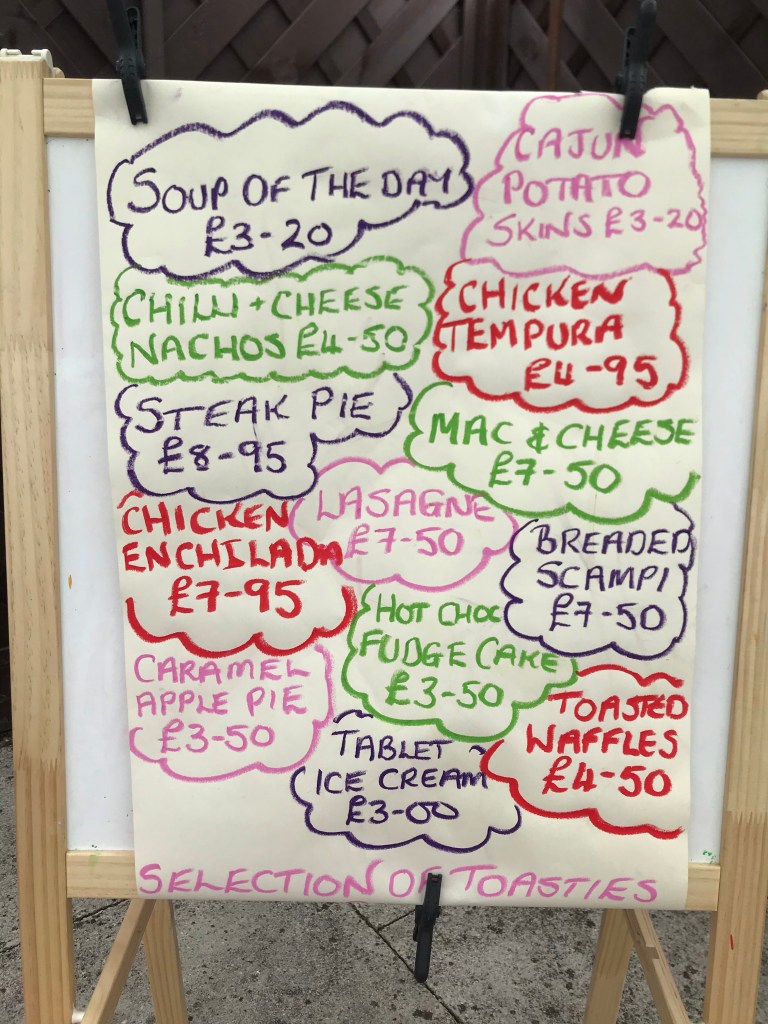 SOUP OF THE DAY
£3-20
CAJUN
POTATO
SKINS £3-20
CHILLI + CHEESE
NACHOS £4-50
CHICKEN
TEMPURA
£4-95
STEAK PIE
£8-95
MAC & CHEESE
£7-50
CHICKEN
ENCHILADA
£7-95
LASAGNE
£7-50
BREADED
SCAMPI
£7-50
HOT CHOC
FUDGE CAKE
£3-50
CARAMEL
APPLE PIE
£3-50
TOASTED
WAFFLES
£4-50
TABLET
ICE CREAM
£3-00
SELECTION OF TOASTIES